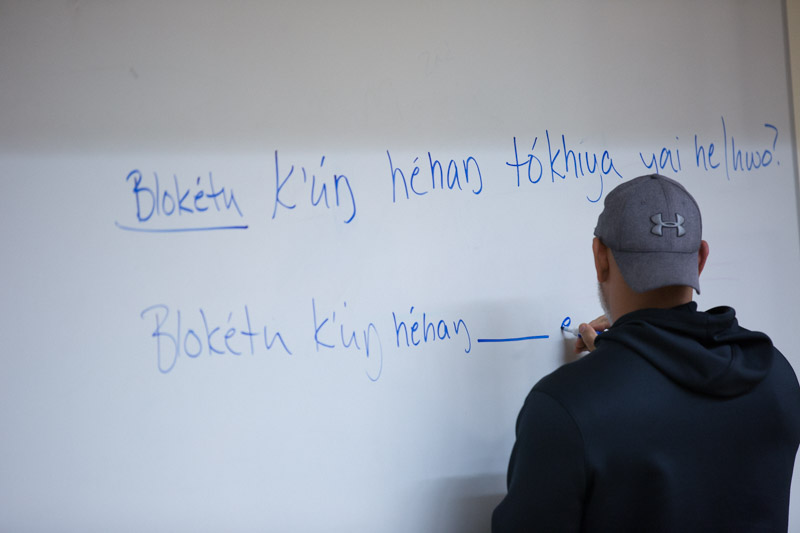 Blokétu k'úŋ héhaŋ tókhiya yai he/hwo?
Blokétu k'úŋ héhaŋ ____ e